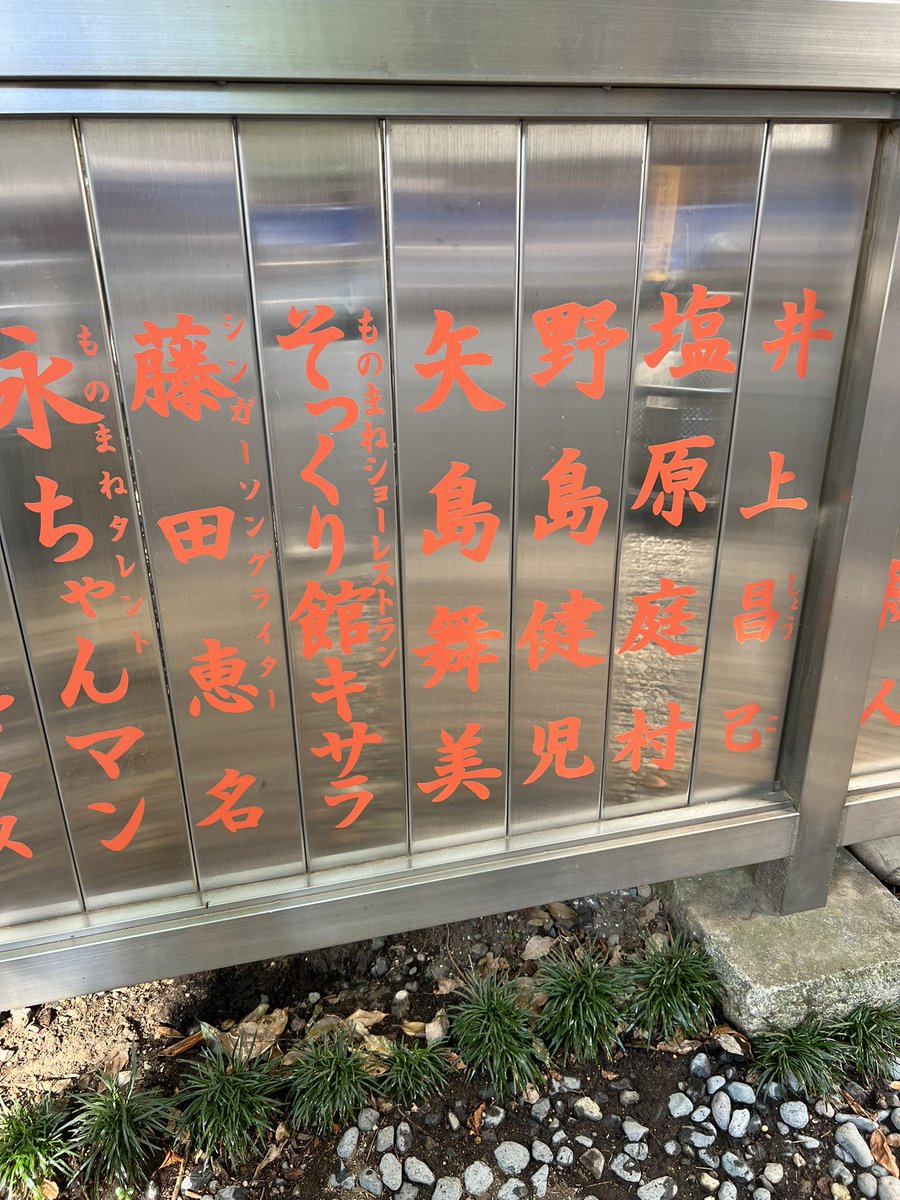 井上昌己
しょう こ
塩原庭村
野島健児
矢島舞美
ものまねショーレストラン
そっくり館キサラ
シンガーソングライター
藤田恵名
ものまねタレント
永ちゃんマン